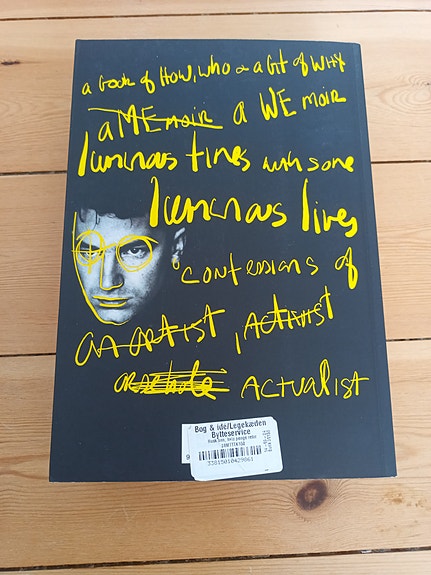 a book of HOW, WHO & a bit of WHY
a MEmoir a WE moir
luminous times with some
luminous lives
confessions of
an artist, Activist
ACTUALIST
Bog & idé/Legekæden
Bytteservice
33015010429061